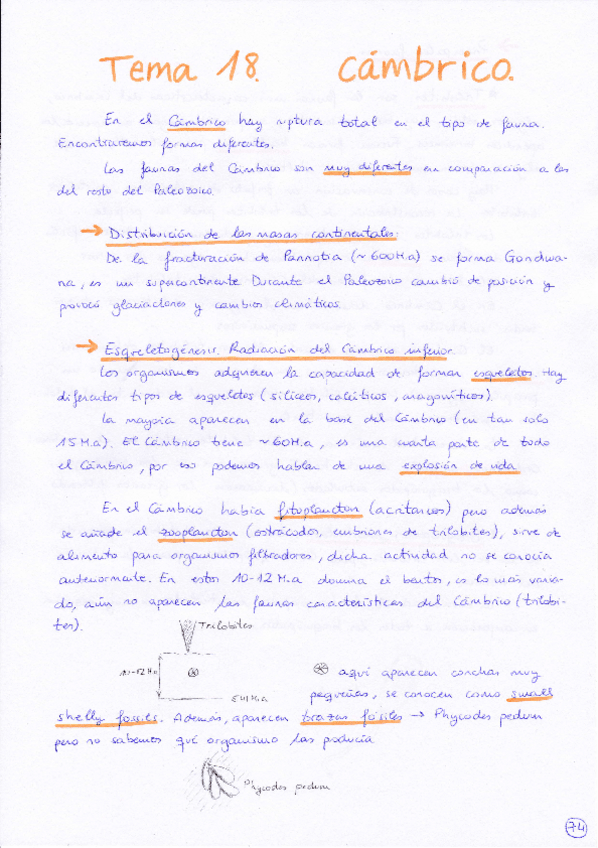 Tema 18. Cámbrico.
En el Cámbrico hay ruptura total en el tipo de fauna.
Encontraremos formas diferentes.
Las faunas del Cámbrico son muy diferentes en comparación a las
del resto del Paleozoico.
→ Distribución de las masas continentales:
De la fracturación de Pannotia (~600H.a) se forma Gondwa-
na, es un supercontinente. Durante el Paleozoico cambió de posición y
provocó glaciaciones y cambios climáticos.
→ Esqueletogénesis. Radiación del Cámbrico inferior.
Los organismos adquieren la capacidad de formar esqueletos. Hay
diferentes tipos de esqueletos (silíceos, calcíticos, aragoníticos).
La mayoría aparecen en la base del Cámbrico (en tan solo
15 M.a). El Cámbrico tiene ~60M.a, es una cuarta parte de todo
el Cámbrico, por eso podemos hablar de una explosión de vida
En el Cámbrico había fitoplancton (acritarcos) pero además
se añade el zooplancton (ostrácodos, embriones de trilobites), sirve de
alimento para organismos filtradores, dicha actividad no se conocía
anteriormente. En estos 10-12 M.a domina el bentos, es lo más varia-
do, aún no aparecen las faunas características del Cámbrico (trilobi-
tes).
Trilobites
10-12 M.a
⊛ aquí aparecen conchas muy
pequeñas, se conocen como small
shelly fossils. Además, aparecen trazas fósiles → Phycodes pedum
pero no sabemos qué organismo las producía
Phycodes pedum
74